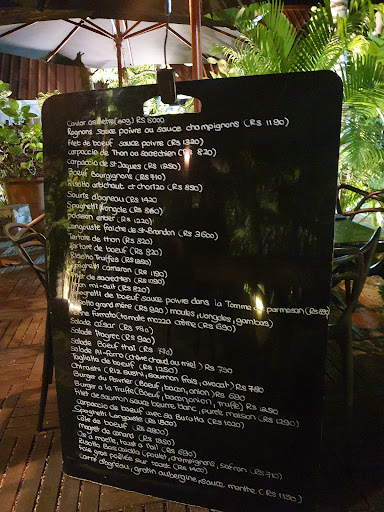 Caviar osciètre (30g) RS 8000
Rognons sauce poivre ou sauce champignons (RS 1190)
Filet de boeuf sauce poivre (RS 1320)
Carpaccio de Thon ou sacréchien (RS 820)
Carpaccio de St Jaques (RS 1290)
Boeuf Bourguignons (RS 910)
Risotto artichaut et chorizo (RS 890)
Souris d'agneau (RS 1420
Spaghetti Vongole (RS 860)
poisson entier (RS 1220)
Langouste fraîche de St-Brandon (RS 3600)
Tartare de thon (RS 820)
Tartare de boeuf (RS 820)
Risotto Truffes (RS 1250)
Spaghetti camaron (RS 1190)
Filet de sacréchien (RS 1090)
Thon mi-cuit (RS 820)
Spaghetti de boeuf sauce poivre dans la Tomme de parmesan (RS
Risotto grand mère (RS 920) moules, vongoles, gambas)
Penne fumoto (tomate mozza crème (RS 690)
Salade césar (RS 790)
Salade Niagree (RS 620)
Salade Boeuf thaï (RS 770)
Salade Al-forno (chèvre chaud au miel) RS 730
Tagliata de boeuf (RS 1250)
Chirashi (Riz sushi, saumon frais, avocat) RS 780
Burger du Palmier (Boeuf, bacon, oignon) RS 690
Burger à la Truffe (Boeuf, bacon, oignon, truffe) RS 1250
Filet de saumon sauce beurre blanc, purée maison (RS 1290)
Carpaccio de boeuf avec sa Burrata (RS 1020
Spaghetti Langouste (RS 1800)
Côte de boeuf (RS 2800)
Magret de canard (RS 1250)
Os à moelle, toast à l'ail (RS 690)
Risotto Bois cavalla (poulet, champignons, safran (RS 710)
Foie gras poêlée sur toast (RS 1400)
Carré d'agneau, gratin aubergine, sauce menthe (RS 1150)